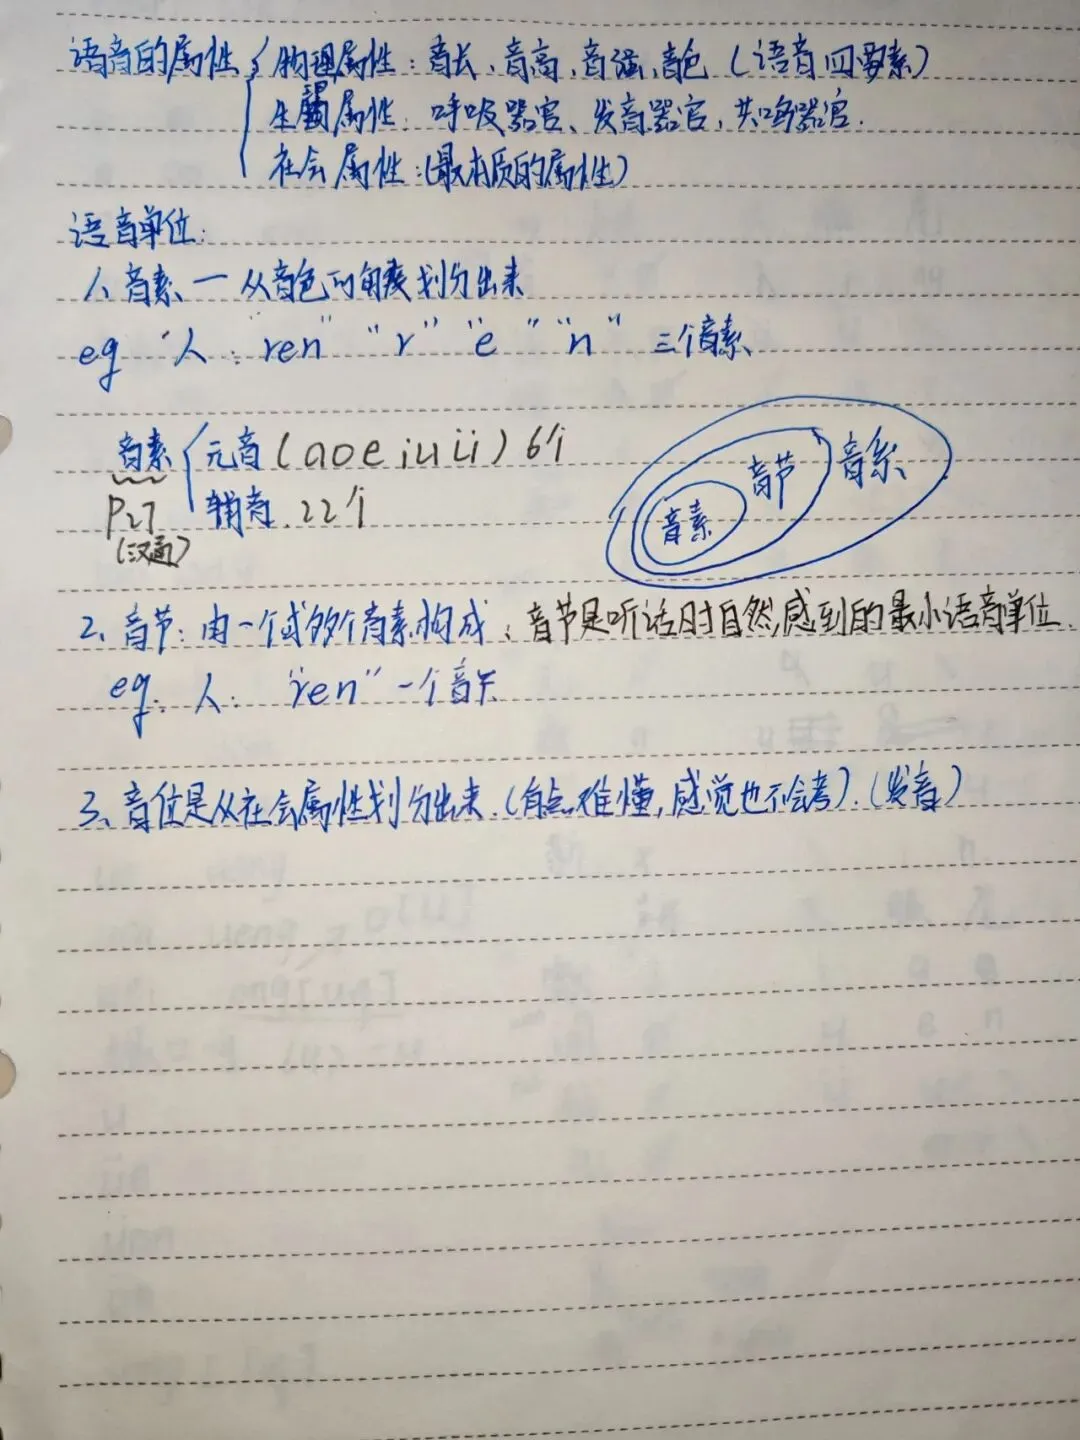 语音的属性 { 物理属性：音长、音高、音强、音色（语音四要素）
生理属性：呼吸器官、发音器官、共鸣器官.
社会属性：(最本质的属性)
语音单位：
1、音素 — 从音色的角度划分出来
eg "人：ren" "r" "e" "n" 三个音素
音素 { 元音（a o e i u ü）6个
P27 辅音.22个
(汉通)
音素 音节 音系
2、音节：由一个或多个音素构成、音节是听话时自然感到的最小语音单位.
eg：人："ren" 一个音节
3、音位是从社会属性划分出来.（有点难懂,感觉也不会考）.（发音）